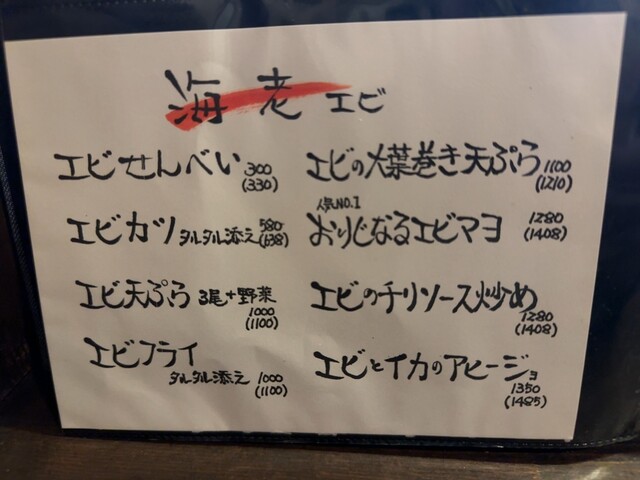 海老 エビ
エビせんべい 300
(330)
エビカツ タルタル添え 580
(638)
エビ天ぷら 3尾+野菜
1000
(1100)
エビフライ
タルタル添え 1000
(1100)
エビの大葉巻き天ぷら 1100
(1210)
人気NO.1
おりじなるエビマヨ 1280
(1408)
エビのチリソース炒め
1280
(1408)
エビとイカのアヒージョ
1350
(1485)